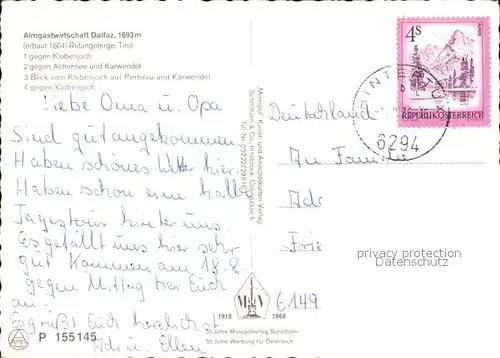 Almgastwirtschaft Dalfaz, 1693m
(erbaut 1664) Rofangebirge, Tirol
1 gegen Klobenjoch
2 gegen Achensee und Karwendel
3 Blick vom Klobenjoch auf Pertisau und Karwendel
4 gegen Klobenjoch
Liebe Oma u. Opa
Sind gut angekommen
Haben schönes Wetter hier.
Haben schon eine halbe
Jagestour hinter uns
Es gefällt uns hier sehr
gut Kommen am 18.8
gegen Mittag bei Euch
an.
Es grüßt Euch herzlichst
u. Ellen
P 155145
"Monopol" Kunst- und Ansichtskarten-Verlag
Schöllhorn & Co., Innsbruck
M V
1918 1968
50 Jahre Monopolverlag Schöllhorn
50 Jahre Werbung für Österreich
4S
REPUBLIK ÖSTERREICH
6294
Deutschland
An Familie
Adr
Frie
privacy protection
Datenschutz
6149